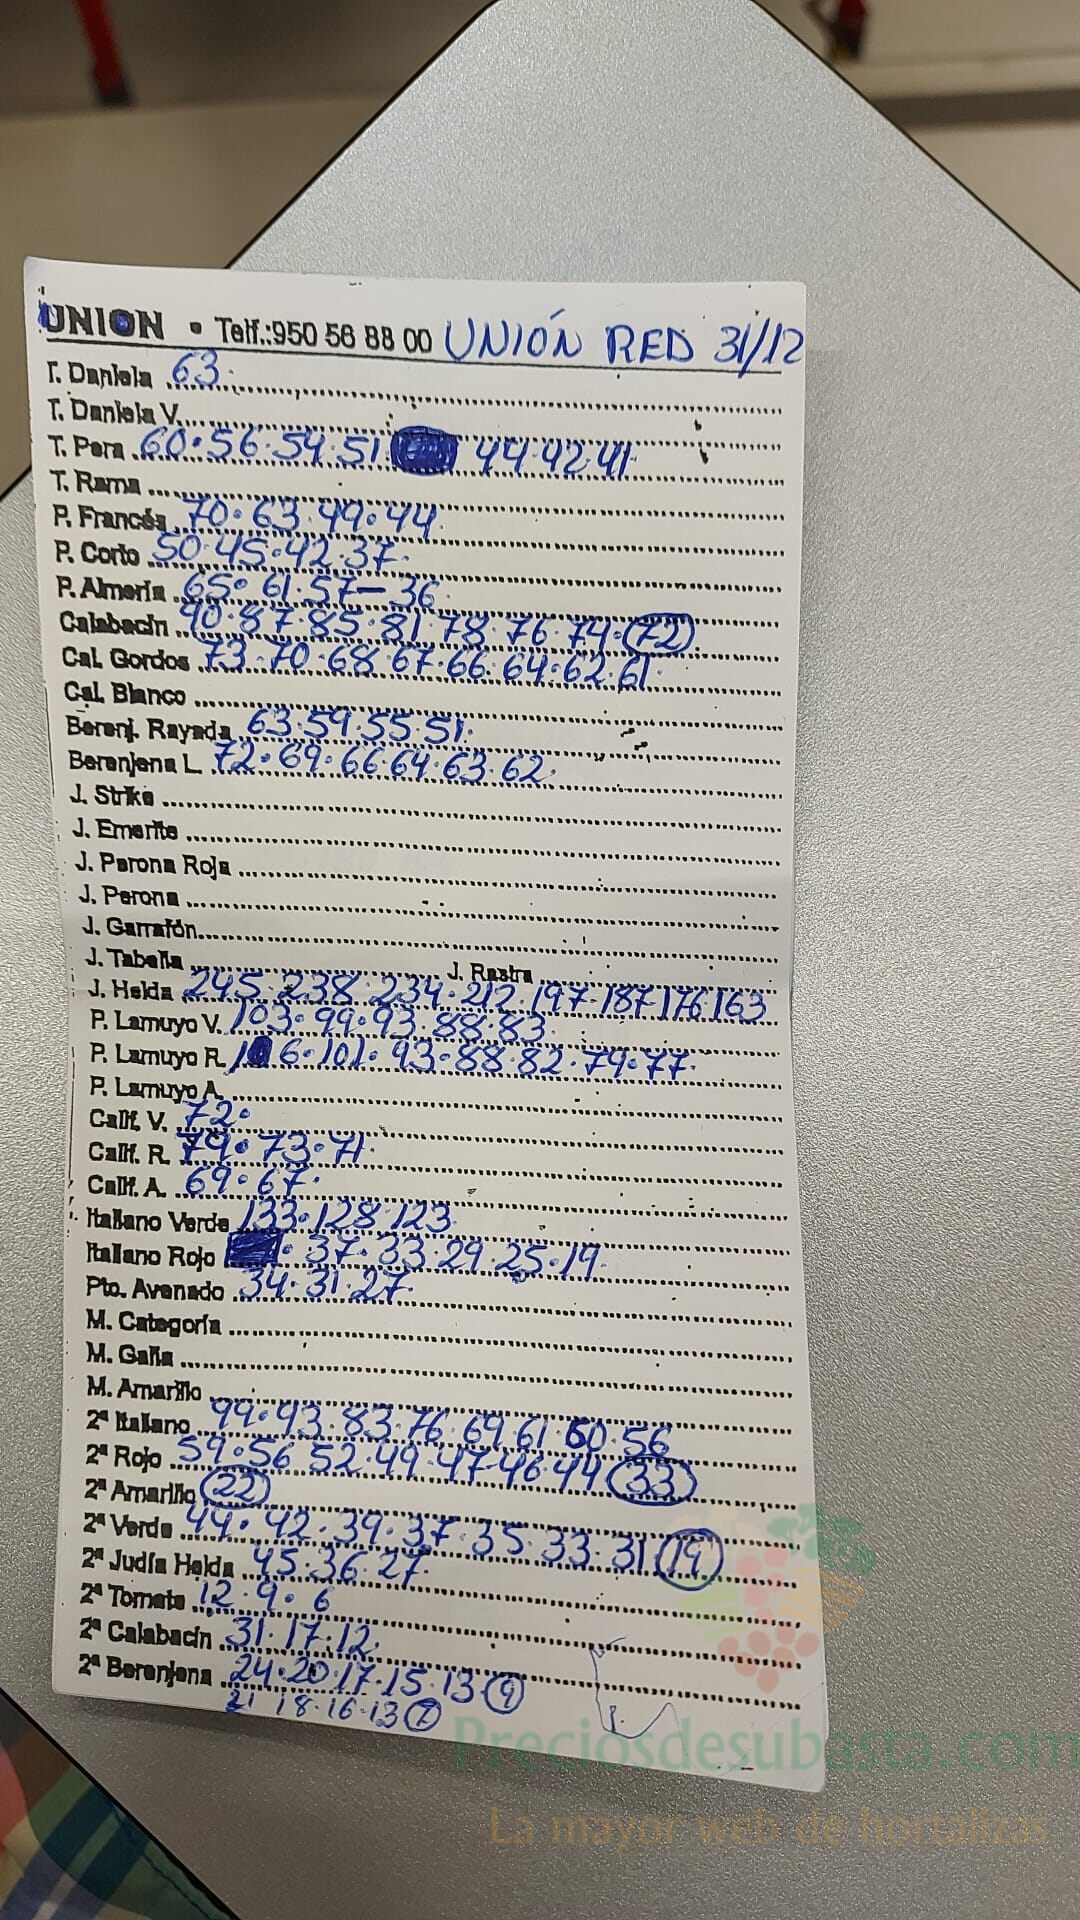 UNION • Telf.:950 56 88 00 UNIÓN RED 31/12
T. Daniela 63.
T. Daniela V.
T. Pera 60.56.54.51. 44.42.41
T. Rama
P. Francés 70.63.49.44.
P. Corto 50.45.42.37.
P. Almería 65.61.57-36.
Calabacín 90.87.85.81.78.76.74.(72)
Cal. Gordos 73.70.68.67.66.64.62.61.
Cal. Blanco
Berenj. Rayada 63.59.55.51.
Berenjena L. 72.69.66.64.63.62.
J. Strike
J. Emerite
J. Perona Roja
J. Perona
J. Garrafón
J. Tabella J. Rastra
J. Helda 245.238.234.212.197.187.176.163
P. Lamuyo V. 103.99.93.88.83.
P. Lamuyo R. 106.101.93.88.82.79.77.
P. Lamuyo A.
Calif. V. 72.
Calif. R. 79.73.71.
Calif. A. 69.67.
Italiano Verde 133.128.123.
Italiano Rojo . 37.33.29.25.19.
Pto. Avenado 34.31.27.
M. Categoría
M. Galia
M. Amarillo
2ª Italiano 99.93.83.76.69.61.60.56
2ª Rojo 59.56.52.49.47.46.44 (33)
2ª Amarillo (22)
2ª Verde 44.42.39.37.35.33.31.(19)
2ª Judía Helda 45.36.27.
2ª Tomate 12.9.6
2ª Calabacín 31.17.12.
2ª Berenjena 24.20.17.15.13.(9)
21 18.16.13 (7)
Preciosdesubasta.com
La mayor web de hortalizas